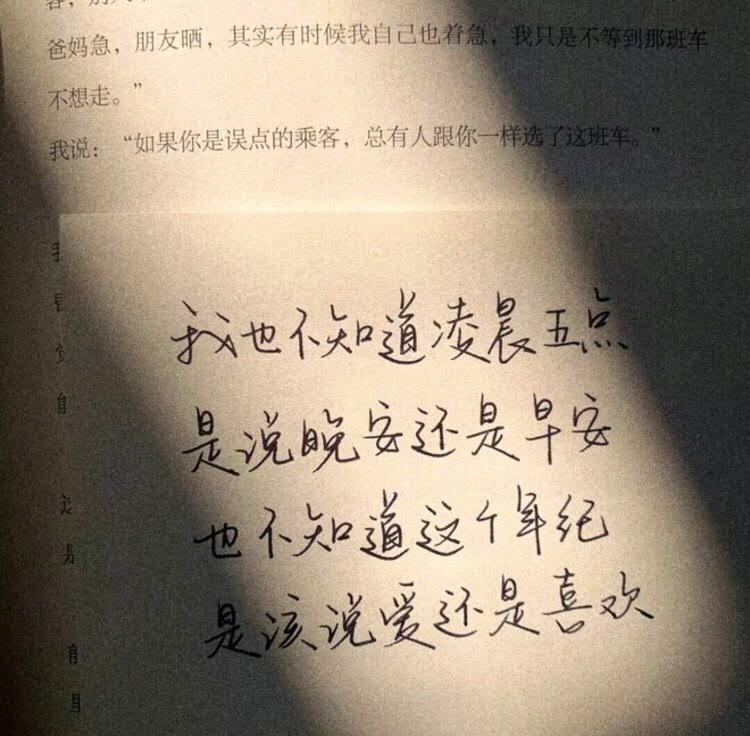 爸妈急，朋友晒，其实有时候我自己也着急，我只是不等到那班车
不想走。”
我说：“如果你是误点的乘客，总有人跟你一样选了这班车。”
我也不知道凌晨五点
是说晚安还是早安
也不知道这个年纪
是该说爱还是喜欢